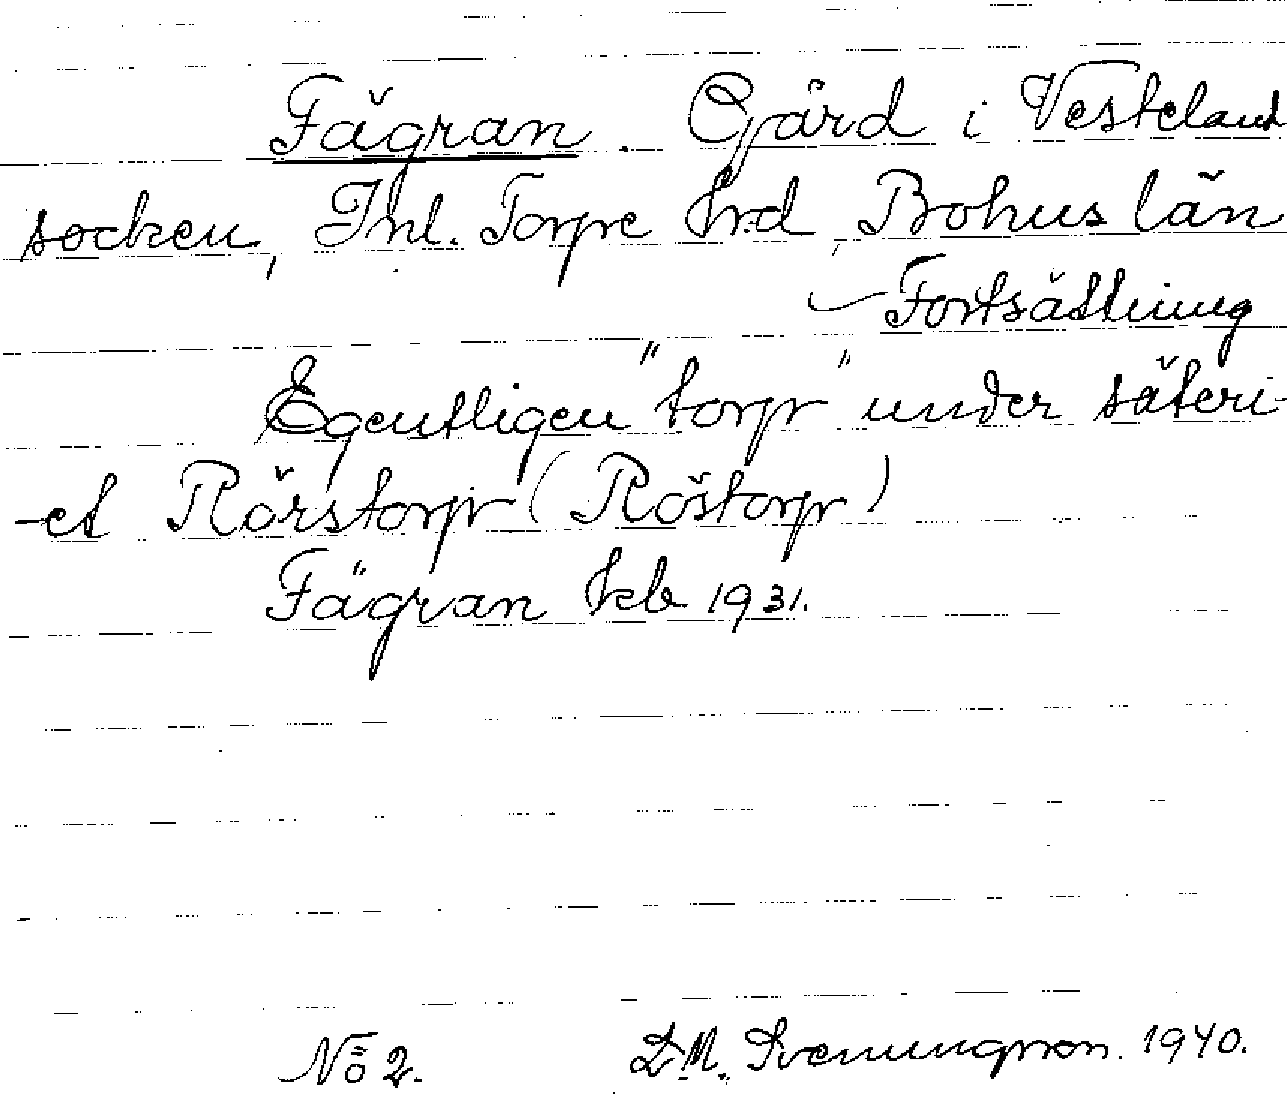 Fägran. Gård i Vesteland
socken, Inl. Torpe hrd, Bohus län
Fortsättning
Egentligen "torp" under säteri-
-et Rörstorp (Röstorp)
Fägran kb 1931.
No 2. D.M. Svenungsson. 1940.